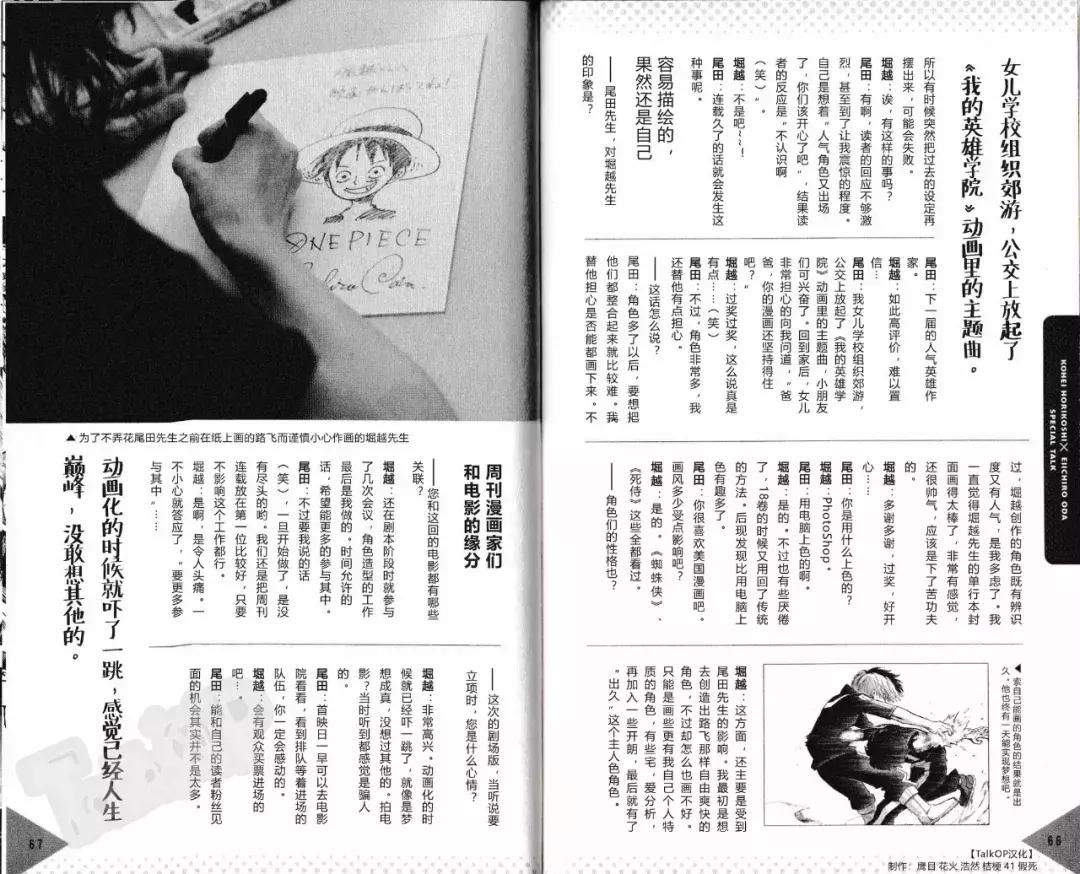 女儿学校组织郊游，公交上放起了
《我的英雄学院》动画里的主题曲。
所以有时候突然把过去的设定再
摆出来，可能会失败。
堀越：诶，有这样的事吗？
尾田：有啊，读者的回应不够激
烈，甚至到了让我震惊的程度。
自己是想着“人气角色又出场
了，你们该开心了吧”，结果读
者的反应是“不认识啊
（笑）”。
堀越：不是吧~~！
尾田：连载久了的话就会发生这
种事呢。
容易描绘的，
果然还是自己
—— 尾田先生，对堀越先生
的印象是？
尾田：下一届的人气英雄作
家。
堀越：如此高评价，难以置
信…
尾田：我女儿学校组织郊游，
公交上放起了《我的英雄学
院》动画里的主题曲，小朋友
们可兴奋了。回到家后，女儿
非常担心的向我问道，“爸
爸，你的漫画还坚持得住
吧？”
堀越：过奖过奖，这么说真是
有点……（笑）
尾田：不过，角色非常多，我
还替他有点担心。
——这话怎么说？
尾田：角色多了以后，要想把
他们都整合起来就比较难。我
替他担心是否能都画下来。不
过，堀越创作的角色既有辨识
度又有人气，是我多虑了。我
一直觉得堀越先生的单行本封
面画得太棒了，非常有感觉，
还很帅气，应该是下了苦功夫
的。
堀越：多谢多谢，过奖，好开
心…
尾田：你是用什么上色的？
堀越：PhotoShop。
尾田：用电脑上色的啊。
堀越：是的。不过也有些厌倦
了，18卷的时候又用回了传统
的方法。后现发现比用电脑上
色有趣多了。
尾田：你很喜欢美国漫画吧。
画风多少受点影响吧？
堀越：是的。《蜘蛛侠》、
《死侍》这些全都看过。
——角色们的性格也？
▲索自己能画的角色的结果就是出
久。他也终有一天能实现梦想吧。
堀越：这方面，还主要是受到
尾田先生的影响。我最初是想
去创造出路飞那样自由爽快的
角色，不过却怎么也画不好。
只能是画些更有我自己个人特
质的角色，有些宅，爱分析，
再加入一些开朗，最后就有了
“出久”这个主人色角色。
KOHEI HORIKOSHI X EIICHIRO ODA
SPECIAL TALK
66
【TalkOP汉化】
制作：鹰目 花火 浩然 桔梗 41 假死
ONE PIECE
▲为了不弄花尾田先生之前在纸上画的路飞而谨慎小心作画的堀越先生
周刊漫画家们
和电影的缘分
——您和这回的电影都有哪些
关联？
堀越：还在剧本阶段时就参与
了几次会议，角色造型的工作
最后是我做的。时间允许的
话，希望能更多的参与其中。
尾田：不过要我说的话
（笑），一旦开始做了，是没
有尽头的哟。我们还是把周刊
连载放在第一位比较好，只要
不影响这个工作都行。
堀越：是啊，是令人头痛。一
不小心就答应了，“要更多参
与其中”……
动画化的时候就吓了一跳，感觉已经人生
巅峰，没敢想其他的。
——这次的剧场版，当听说要
立项时，您是什么心情？
堀越：非常高兴。动画化的时
候就已经吓一跳了，就像是梦
想成真，没想过其他的。拍电
影？当时听到都感觉是骗人
的。
尾田：首映日一早可以去电影
院看看，看到排队等着进场的
队伍，你一定会感动的。
堀越：会有观众买票进场的
吧…。
尾田：能和自己的读者粉丝见
面的机会其实并不是太多。
67